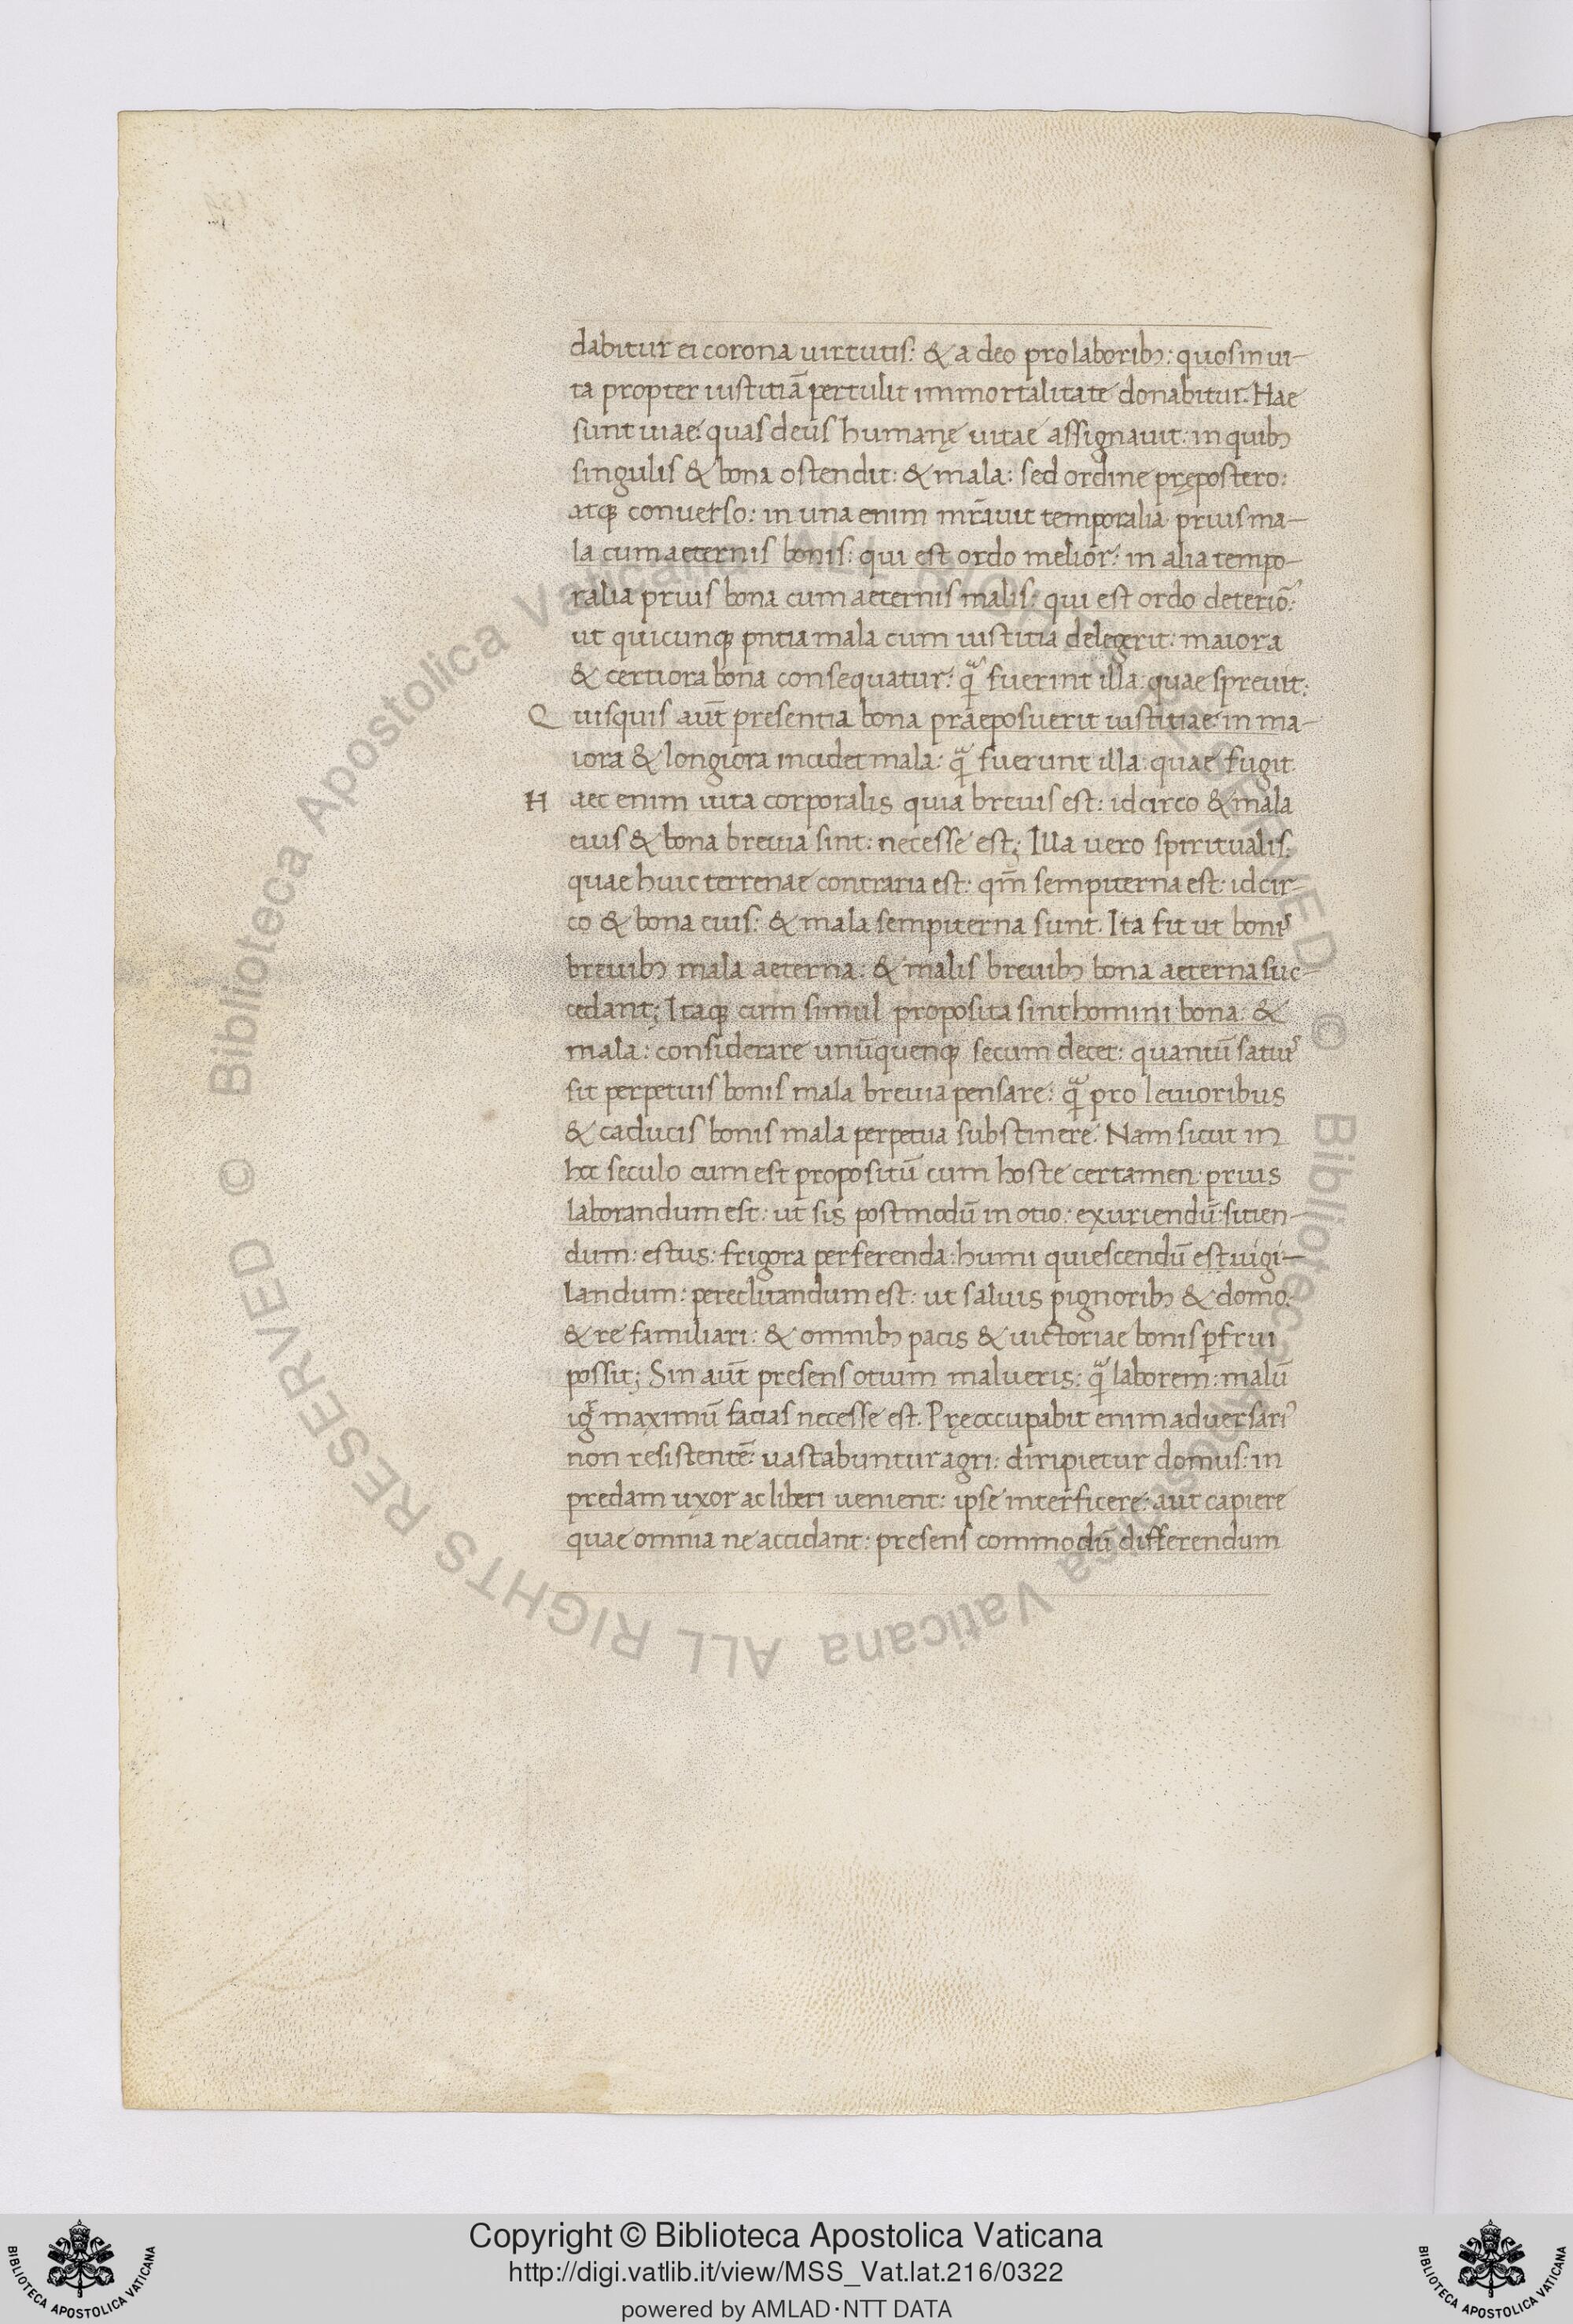 dabitur ei corona uirtutis: & a deo pro laborib3: quos in ui-
ta propter iustitiā pertulit immortalitate donabitur. Hae
sunt uiae: quas deus humanę uitae assignauit: in quib3
singulis & bona ostendit: & mala: sed ordine prępostero:
atq3 conuerso: in una enim mr̄auit temporalia prius ma-
la cum aeternis bonis: qui est ordo melior: in alia tempo-
ralia prius bona cum aeternis malis: qui est ordo deterio᷑:
ut quicunq3 pntia mala cum iustitia delegerit: maiora
& certiora bona consequatur: qᷓ fuerint illa quae spreuit:
Q uisquis aut̄ presentia bona praeposuerit iustitiae: in ma-
iora & longiora incidet mala: qᷓ fuerunt illa: quae fugit.
H aec enim uita corporalis quia breuis est: idcirco & mala
eius & bona breuia sint: necesse est; Illa uero spiritualis:
quae huic terrenae contraria est: qm̄ sempiterna est: idcir-
co & bona eius: & mala sempiterna sunt. Ita fit ut bonis
breuib3 mala aeterna: & malis breuib3 bona aeterna suc-
cedant; Itaq3 cum simul proposita sint homini bona: &
mala: considerare unūquenq3 secum decet: quantū satius
sit perpetuis bonis mala breuia pensare: qᷓ pro leuioribus
& caducis bonis mala perpetua substinere. Nam sicut in
hoc seculo cum est propositū cum hoste certamen: prius
laborandum est: ut sis postmodū in otio: exuriendū: sitien-
dum: estus: frigora perferenda: humi quiescendū est uigi-
landum: pereclitandum est: ut saluis pignorib3 & domo:
& re familiari: & omnib3 pacis & uictoriae bonis ꝑfrui
possit; Sin aut̄ presens otium malueris: qᷓ laborem: malū
ig̃ maximū facias necesse est. Pręoccupabit enim aduersari᾽
non resistentē: uastabuntur agri: diripietur domus: in
predam uxor ac liberi uenient: ipse interficere: aut capiere
quae omnia ne accidant: presens commodū differendum
© Biblioteca Apostolica Vaticana ALL RIGHTS RESERVED © Biblioteca Apostolica Vaticana ALL RIGHTS RESERVED
Copyright © Biblioteca Apostolica Vaticana
http://digi.vatlib.it/view/MSS_Vat.lat.216/0322
powered by AMLAD·NTT DATA
BIBLIOTECA APOSTOLICA VATICANA
BIBLIOTECA APOSTOLICA VATICANA